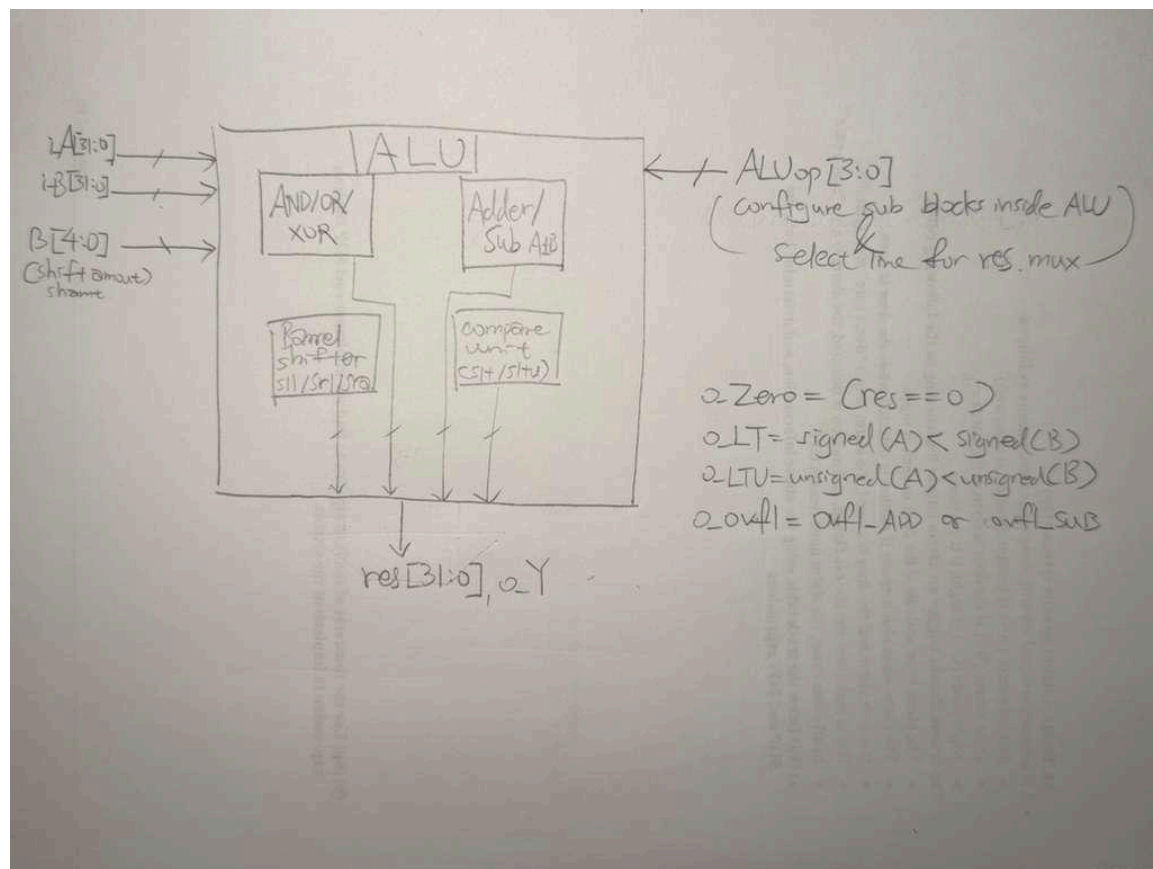 ALU
i_A[31:0]
i-B[31:0]
B[4:0]
(shift amout)
shamt
AND/OR/
XOR
Adder/
Sub A±B
Barrel
shifter
sll/srl/sra
compare
unit
(slt/sltu)
res[31:0], o_Y
ALUop[3:0]
(configure sub blocks inside ALU
&
select line for res. mux)
o_Zero = (res==0)
o_LT = signed(A) < signed(B)
o_LTU = unsigned(A) < unsigned(B)
o_ovfl = ovfl_ADD or ovfl_SUB